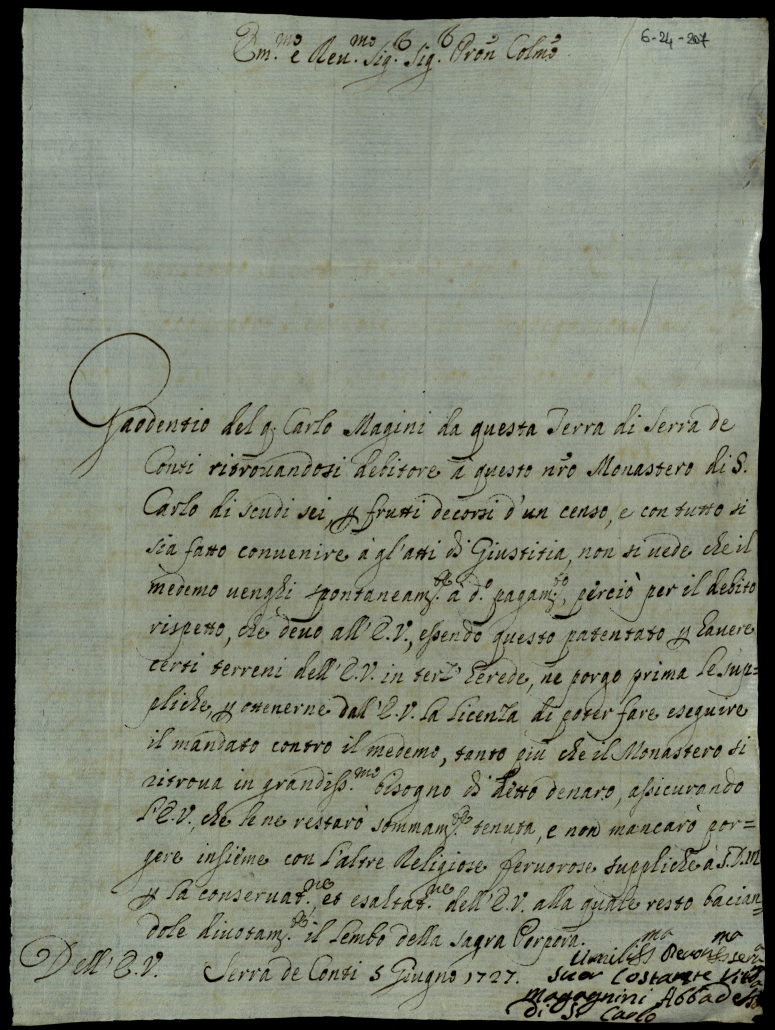 6-24-207
Em.mo e Reu.mo Sig.r Sig.r Pron Colmo
Gaodentio del q. Carlo Magini da questa Terra di Serra de
Conti ritrouandosi debitore à questo nro Monastero di S.
Carlo di scudi sei, p frutti decorsi d'un censo, e con tutto si
sia fatto conuenire à gl'atti di Giustitia, non si uede che il
medemo uenghi spontaneam.te à d.o pagam.to, perciò per il debito
rispetto, che deuo all'E.V., essendo questo patentato p hauere
certi terreni dell'E.V. in herede, ne porgo prima le sup=
pliche, p ottenerne dall'E.V. la licenza di poter fare eseguire
il mandato contro il medemo, tanto più che il Monastero si
ritroua in grandiss.mo bisogno di detto denaro, assicurando
l'E.V., che le ne restarò sommam.te tenuta, e non mancarò por=
gere insieme con l'altre Religiose feruorose suppliche à S.D.M
p la conseruat.ne et esaltat.ne dell'E.V. alla quale resto bacian=
dole diuotam.te il lembo della sagra Porpora.
Dell'E.V. Serra de Conti 5 Giugno 1727.
Umiliss.ma Deuotiss.ma
Suor Costante
Magagnini Abbadessa
di S. Carlo